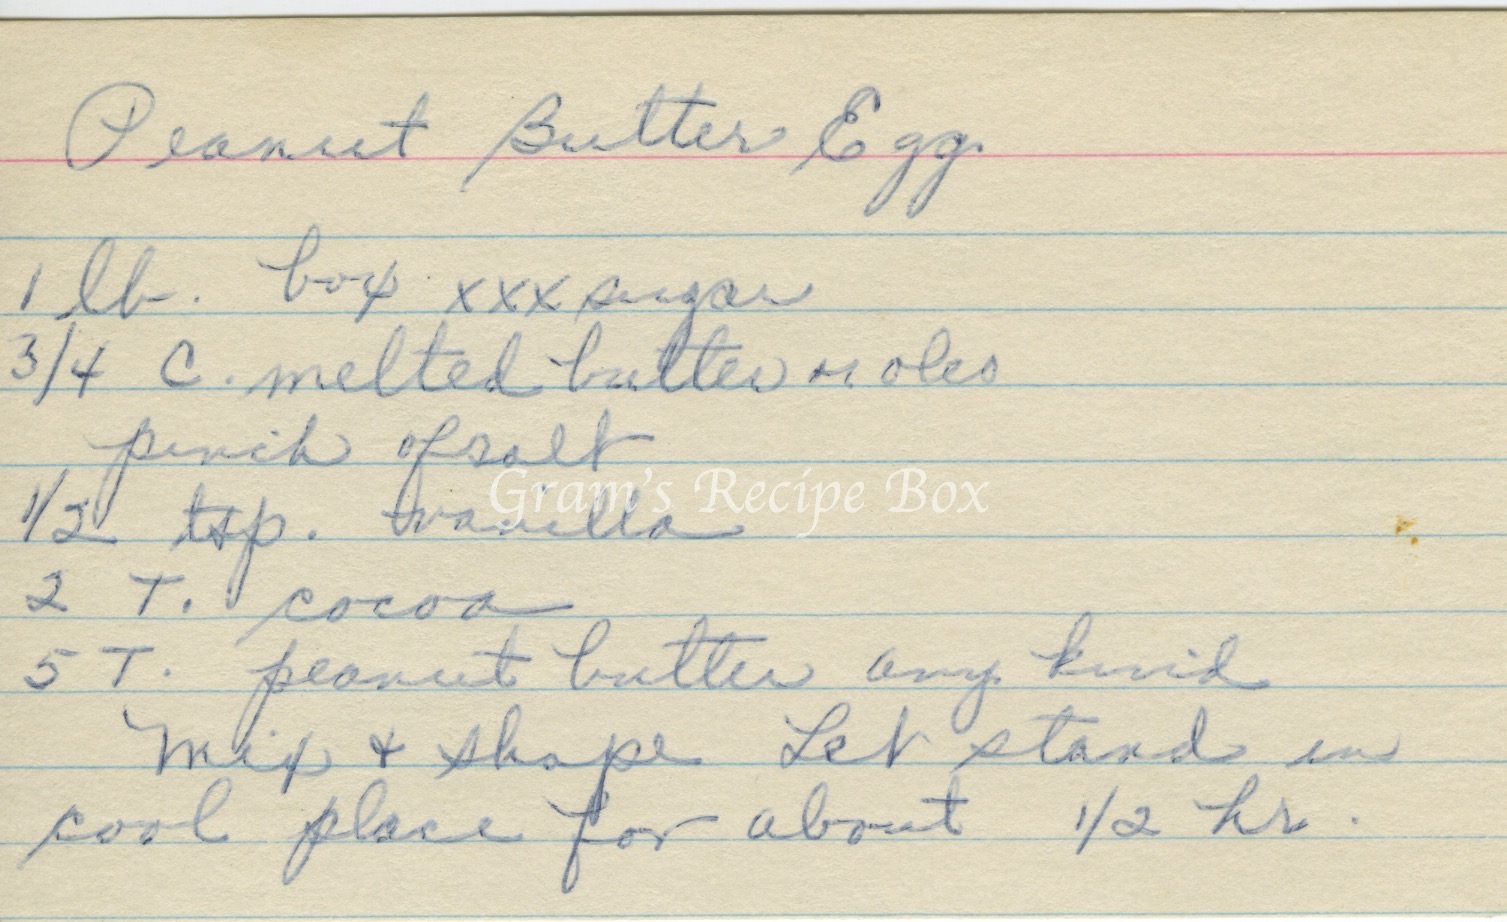 Peanut Butter Egg.
1 lb. box xxx sugar
3/4 C. melted butter or oleo
pinch of salt
Gram's Recipe Box
1/2 tsp. vanilla
2 T. cocoa
5 T. peanut butter any kind
Mix & shape Let stand in
cool place for about 1/2 hr.